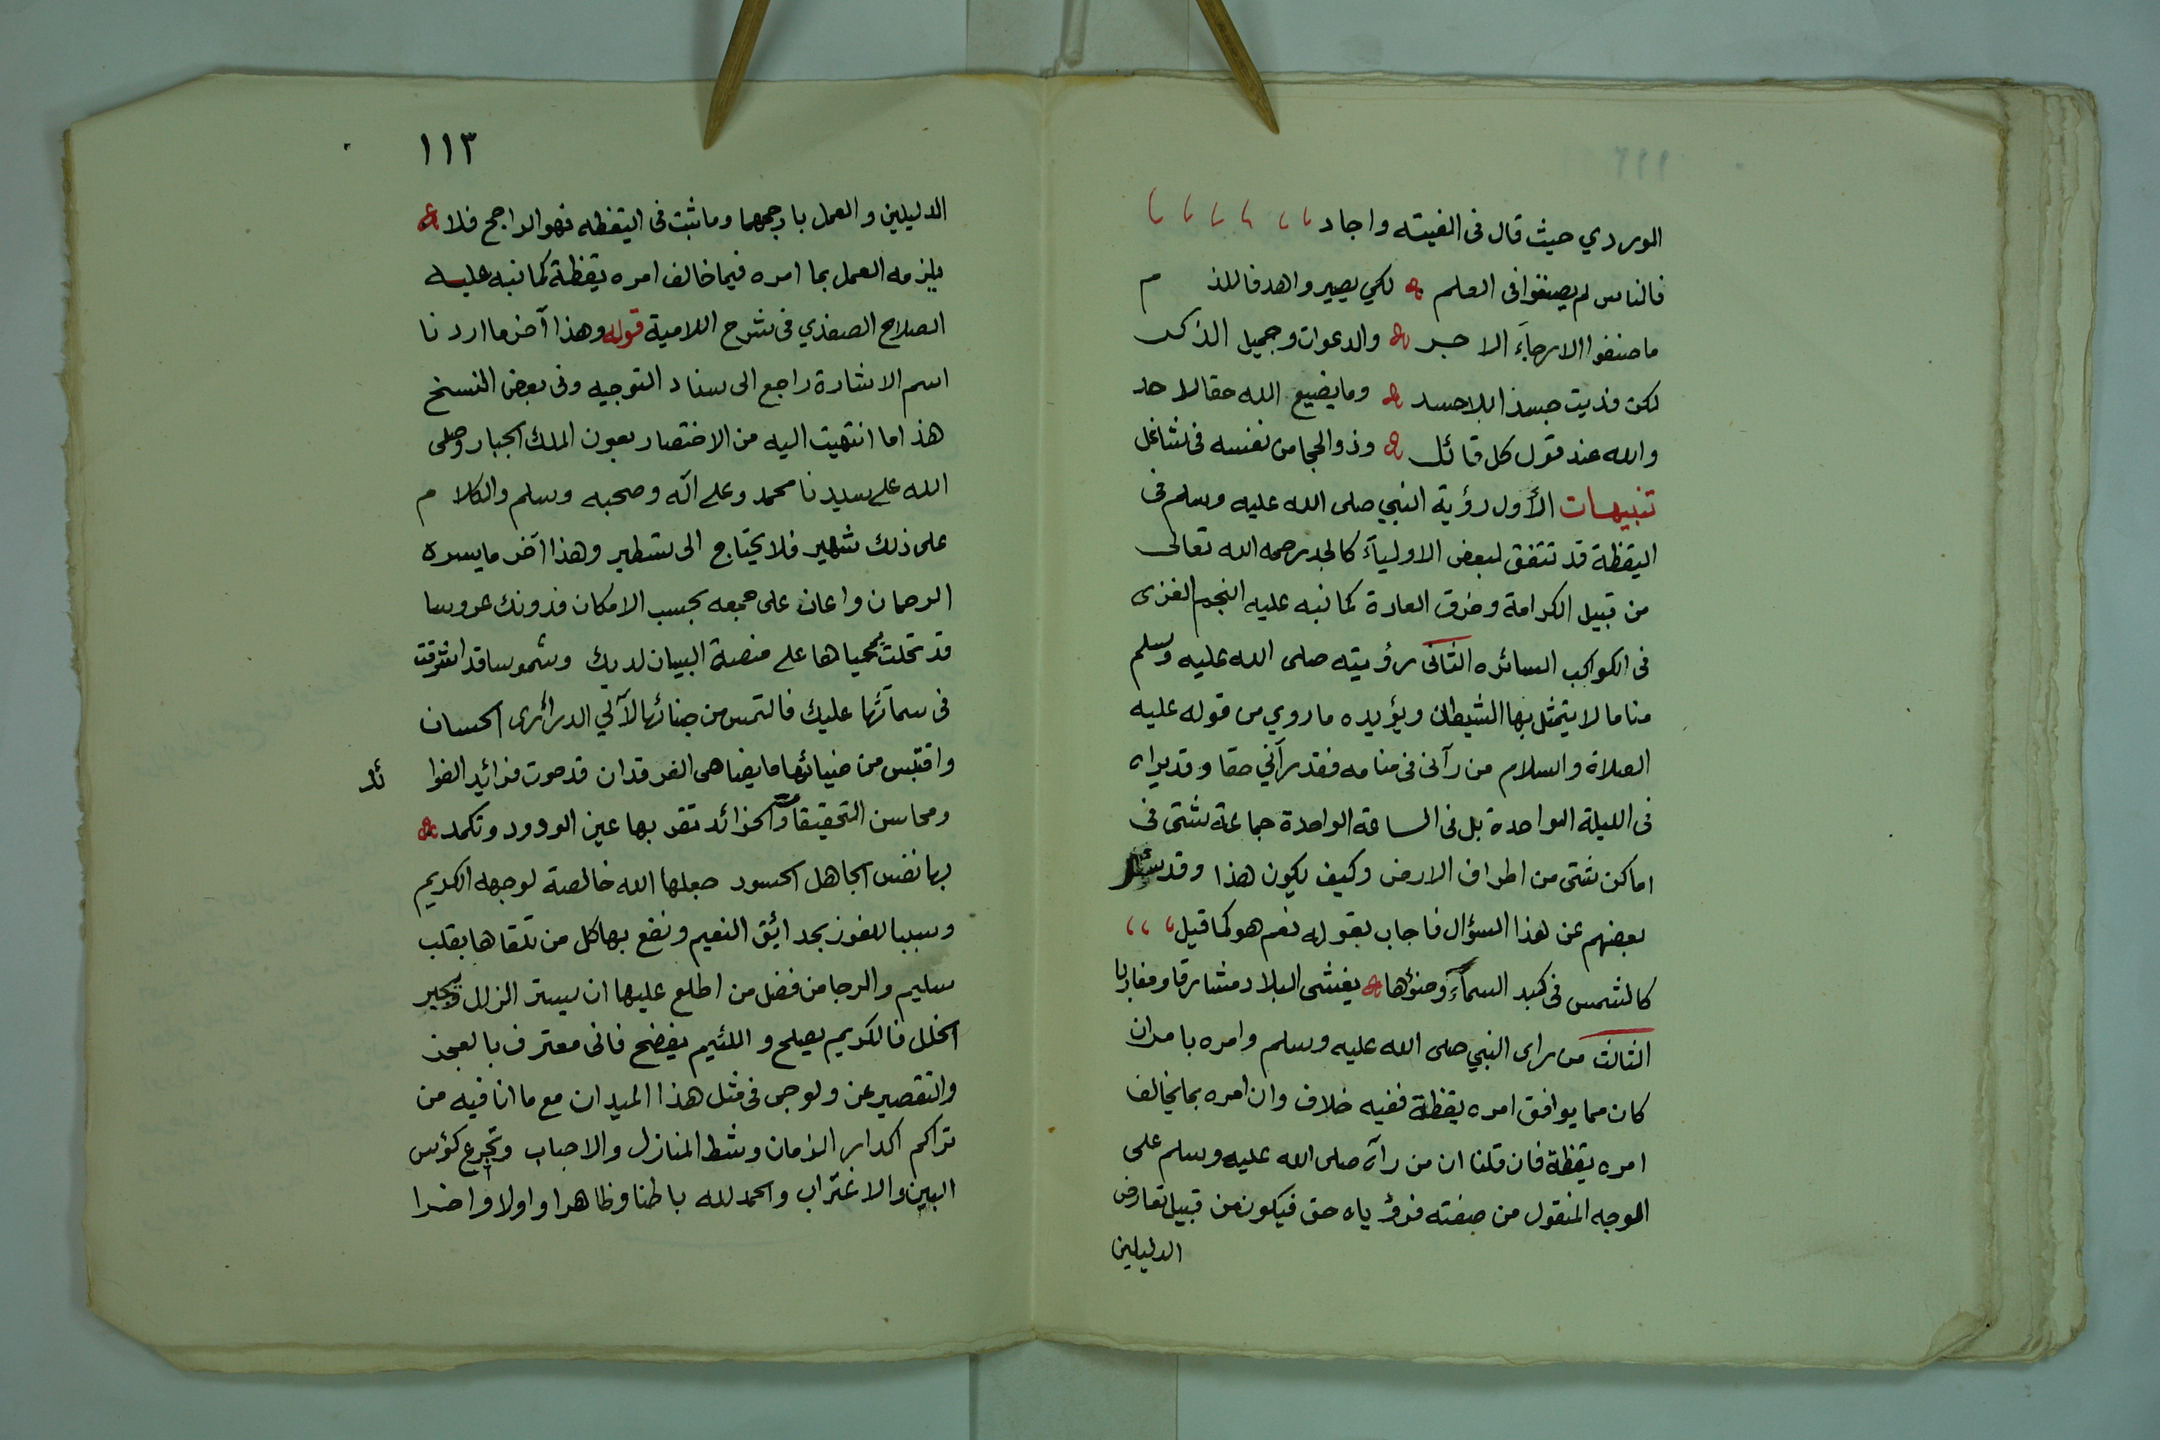 الوردي حيث قال في الفيته واجاد
فالناس لم يصنفوا في العلم لكي يصير واهدفا للذم
ما صنفوا الا رجآء الاجر والدعوات وجميل الذكر
لكن فديت جسدا بلا حسد وما يضيع الله حقا لاحد
والله عند قول كل قائل وذو الحجا من نفسه في شاغل
تنبيهات الأول رؤية النبي صلى الله عليه وسلم في
اليقظة قد تتفق لبعض الاوليآء كالجد رحمه الله تعالى
من قبيل الكرامة وخرق العادة كما نبه عليه النجم الغزى
في الكواكب السائره الثاني رؤيته صلى الله عليه وسلم
مناما لا يتمثل بها الشيطان ويؤيده ما روي من قوله عليه
الصلاة والسلام من رآنى في منامه فقد رآني حقا وقد يراه
في الليلة الواحدة بل في الساعة الواحدة جماعة شتى في
اماكن شتى من اطراف الارض وكيف يكون هذا وقد سئل
بعضهم عن هذا السؤال فاجاب بقوله نعم هو كما قيل
كالشمس في كبد السمآء وضوؤها يغشى البلاد مشارقا ومغاربا
الثالث من راى النبي صلى الله عليه وسلم وامره بامر ان
كان مما يوافق امره يقظة ففيه خلاف وان امره بما يخالف
امره يقظة فان قلنا ان من رآه صلى الله عليه وسلم على
الوجه المنقول من صفته فرؤياه حق فيكون من قبيل تعارض
الدليلين
١١٣
الدليلين والعمل بارجحهما وما ثبت في اليقظه فهو الراجح فلا
يلزمه العمل بما امره فيما خالف امره يقظة كما نبه عليه
الصلاح الصفدي في شرح اللامية قوله وهذا آخر ما اردنا
اسم الاشارة راجع الى سناد التوجيه وفي بعض النسخ
هذا ما انتهيت اليه من الاختصار بعون الملك الجبار وصلى
الله على سيدنا محمد وعلى آله وصحبه وسلم والكلام
على ذلك شهير فلا يحتاج الى تسطير وهذا آخر ما يسره
الرحمان واعان على جمعه بحسب الامكان فدونك عروسا
قد تجلت بمحياها على منصة البيان لديك وشموسا قد اشرقت
في سمآئها عليك فالتمس من جنائها لآلي الدرائرى الحسان
واقتبس من ضيائها ما يضاهى الفرقدان قد حوت فرائد الفوا
ئد
ومحاسن التحقيقات والخرائد تقر بها عين الودود وتكمد
بها نفس الجاهل الحسود جعلها الله خالصة لوجهه الكريم
وسببا للفوز بحدائق النعيم ونفع بها كل من تلقاها بقلب
سليم والرجا من فضل من اطلع عليها ان يستر الزلل ويجبر
الخلل فالكريم يصلح واللئيم يفضح فانى معترف بالعجز
والتقصير عن ولوجى في مثل هذا الميدان مع ما انا فيه من
تراكم اكدار الزمان وشط المنازل والاحباب وتجرع كؤس
البين والاغتراب والحمد لله باطنا وظاهرا واولا واخرا